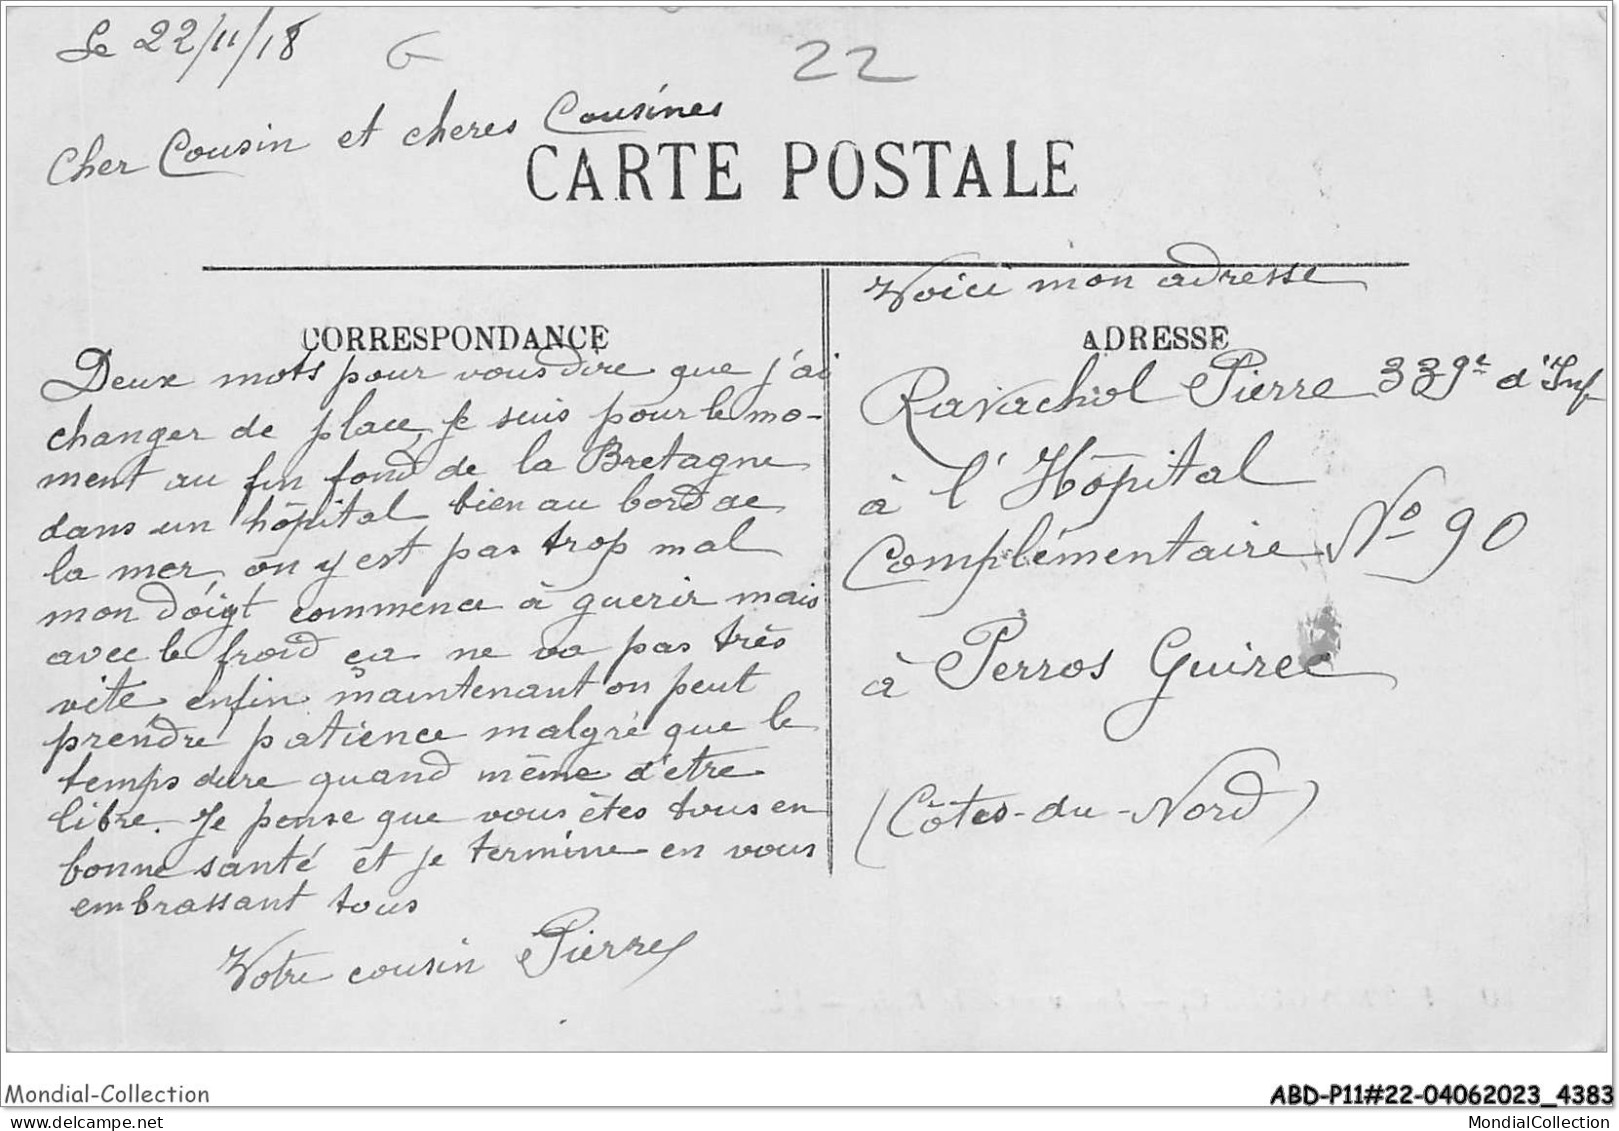 Le 22/11/18
G
22
Cher Cousin et cheres Cousines
CARTE POSTALE
CORRESPONDANCE
Deux mots pour vous dire que j'ai
changer de place, je suis pour le mo-
ment au fin fond de la Bretagne
dans un hôpital bien au bord de
la mer, on y est pas trop mal
mon doigt commence à guerir mais
avec le froid ça ne va pas très
vite, enfin maintenant on peut
prendre patience malgré que le
temps dure quand même d'être
libre. Je pense que vous êtes tous en
bonne santé et je termine en vous
embrassant tous
Votre cousin Pierre
Voici mon adresse
ADRESSE
Ravachol Pierre 339e d'Inf
à l'Hôpital
Complémentaire No 90
à Perros Guirec
(Côtes-du-Nord)
Mondial-Collection
ABD-P11#22-04062023_4383
www.delcampe.net
MondialCollection